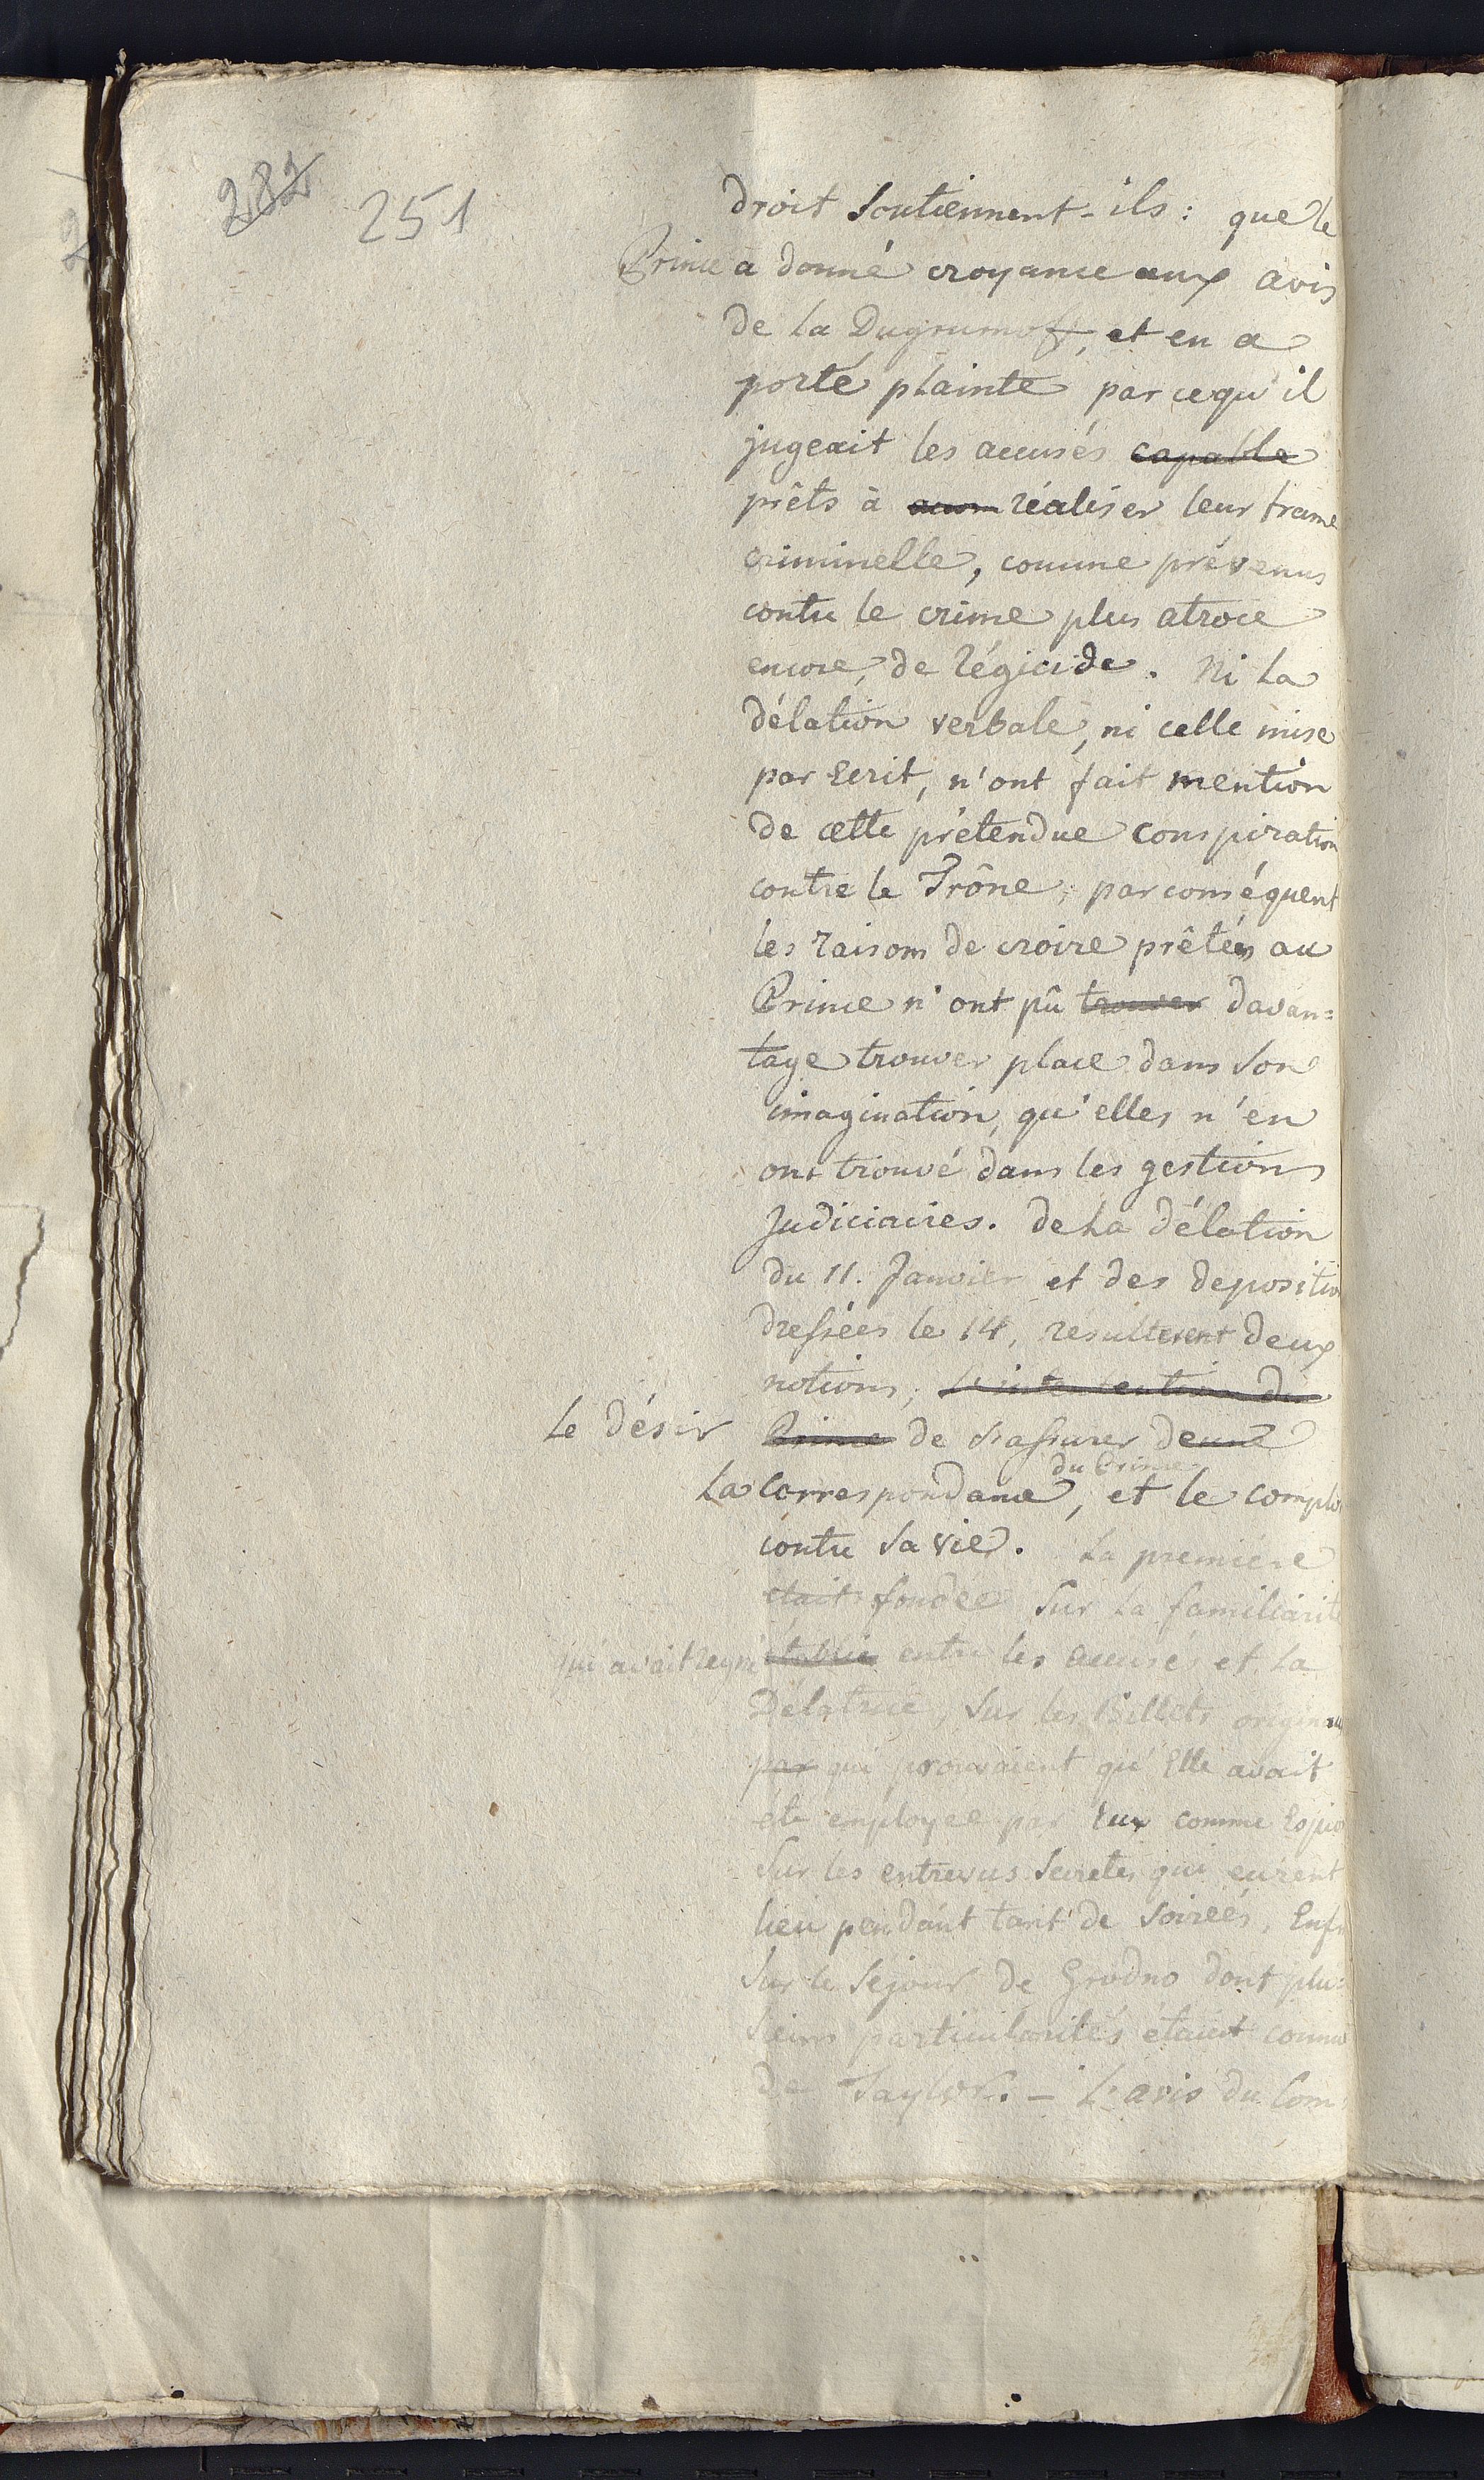 282 251
droit soutiennent-ils : que le
Prince a donné croyance aux avis
de la Dugrumoff, et en a
porté plainte parcequ'il
jugeait les accusés capable
prêts à accom réaliser leur trame
criminelle, comme prévenus
contre le crime plus atroce
encore, de régicide. Ni la
délation verbale, ni celle mise
par Ecrit, n'ont fait mention
de cette prétendue conspiration
contre le Trône; par conséquent
les raisons de croire prêtées au
Prince n'ont pû trouver davan=
tage trouver place dans son
imagination, qu'elles n'en
ont trouvé dans les gestions
Judiciaires. de La délation
du 11. Janvier et des deposition
dressées le 14, resulterent deux
notions; du
Le désir Prince de s'assurer deune
La correspondance du Prince, et le complo
contre sa vie. La premiere
etait fondée sur la familiarité
qui avait regné établie entre les accusés et la
Délatrice, sur les Billets originaux
par qui prouvaient qu'Elle avait
été employée par Eux comme Espion
sur les entrevus secretes qui eurent
lieu pendant tant de soireés, Enfin
sur le séjour de Grodno dont plu=
sieurs particularités étaient connu
de Taylor. - L'avis du Com